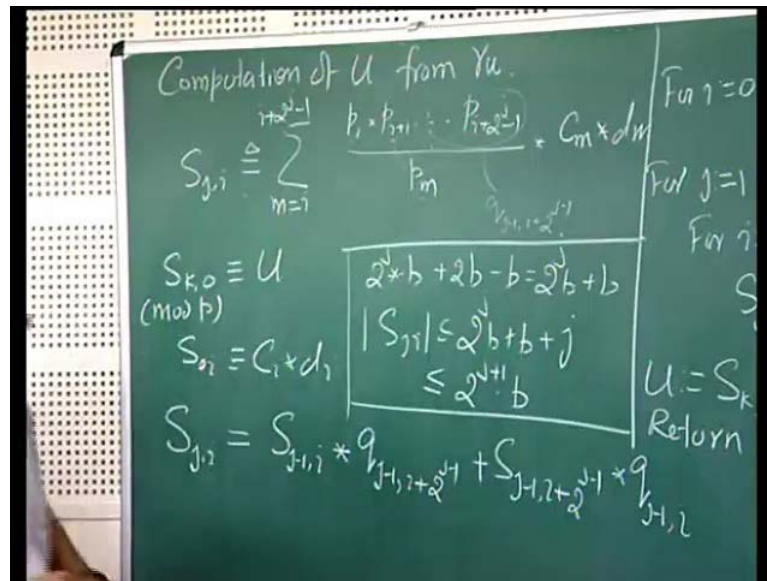 Computation of U from ru.
S_{j,i} ≜ \sum_{m=i}^{i+2^j-1} \frac{p_i * p_{i+1} \cdots p_{i+2^j-1}}{p_m} * C_m * d_m
q_{j-1, i+2^{j-1}}
S_{k,0} ≡ U
(mod p)
S_{0i} ≡ C_i * d_i
2^j * b + 2b - b = 2^j b + b
|S_{ji}| ≤ 2^j b + b + j
≤ 2^{j+1} b
S_{j,i} = S_{j-1,i} * q_{j-1, i+2^{j-1}} + S_{j-1, i+2^{j-1}} * q_{j-1, i}
For i=0
For j=1
For i
S
U := S_K
Return